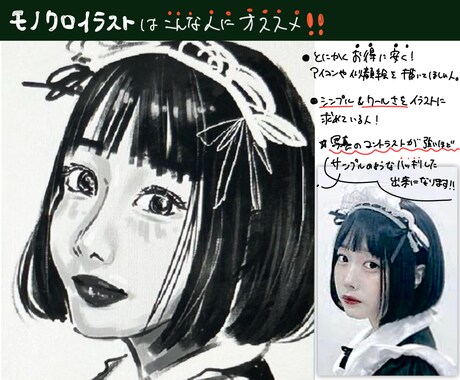 モノクロイラストはこんな人にオススメ!!
●とにかくお得に安く!
アイコンや似顔絵を描いてほしい人。
●シンプル&クールさをイラストに
求めている人!
※写真のコントラストが強いほど
サンプルのようなハッキリした
出来になります!!